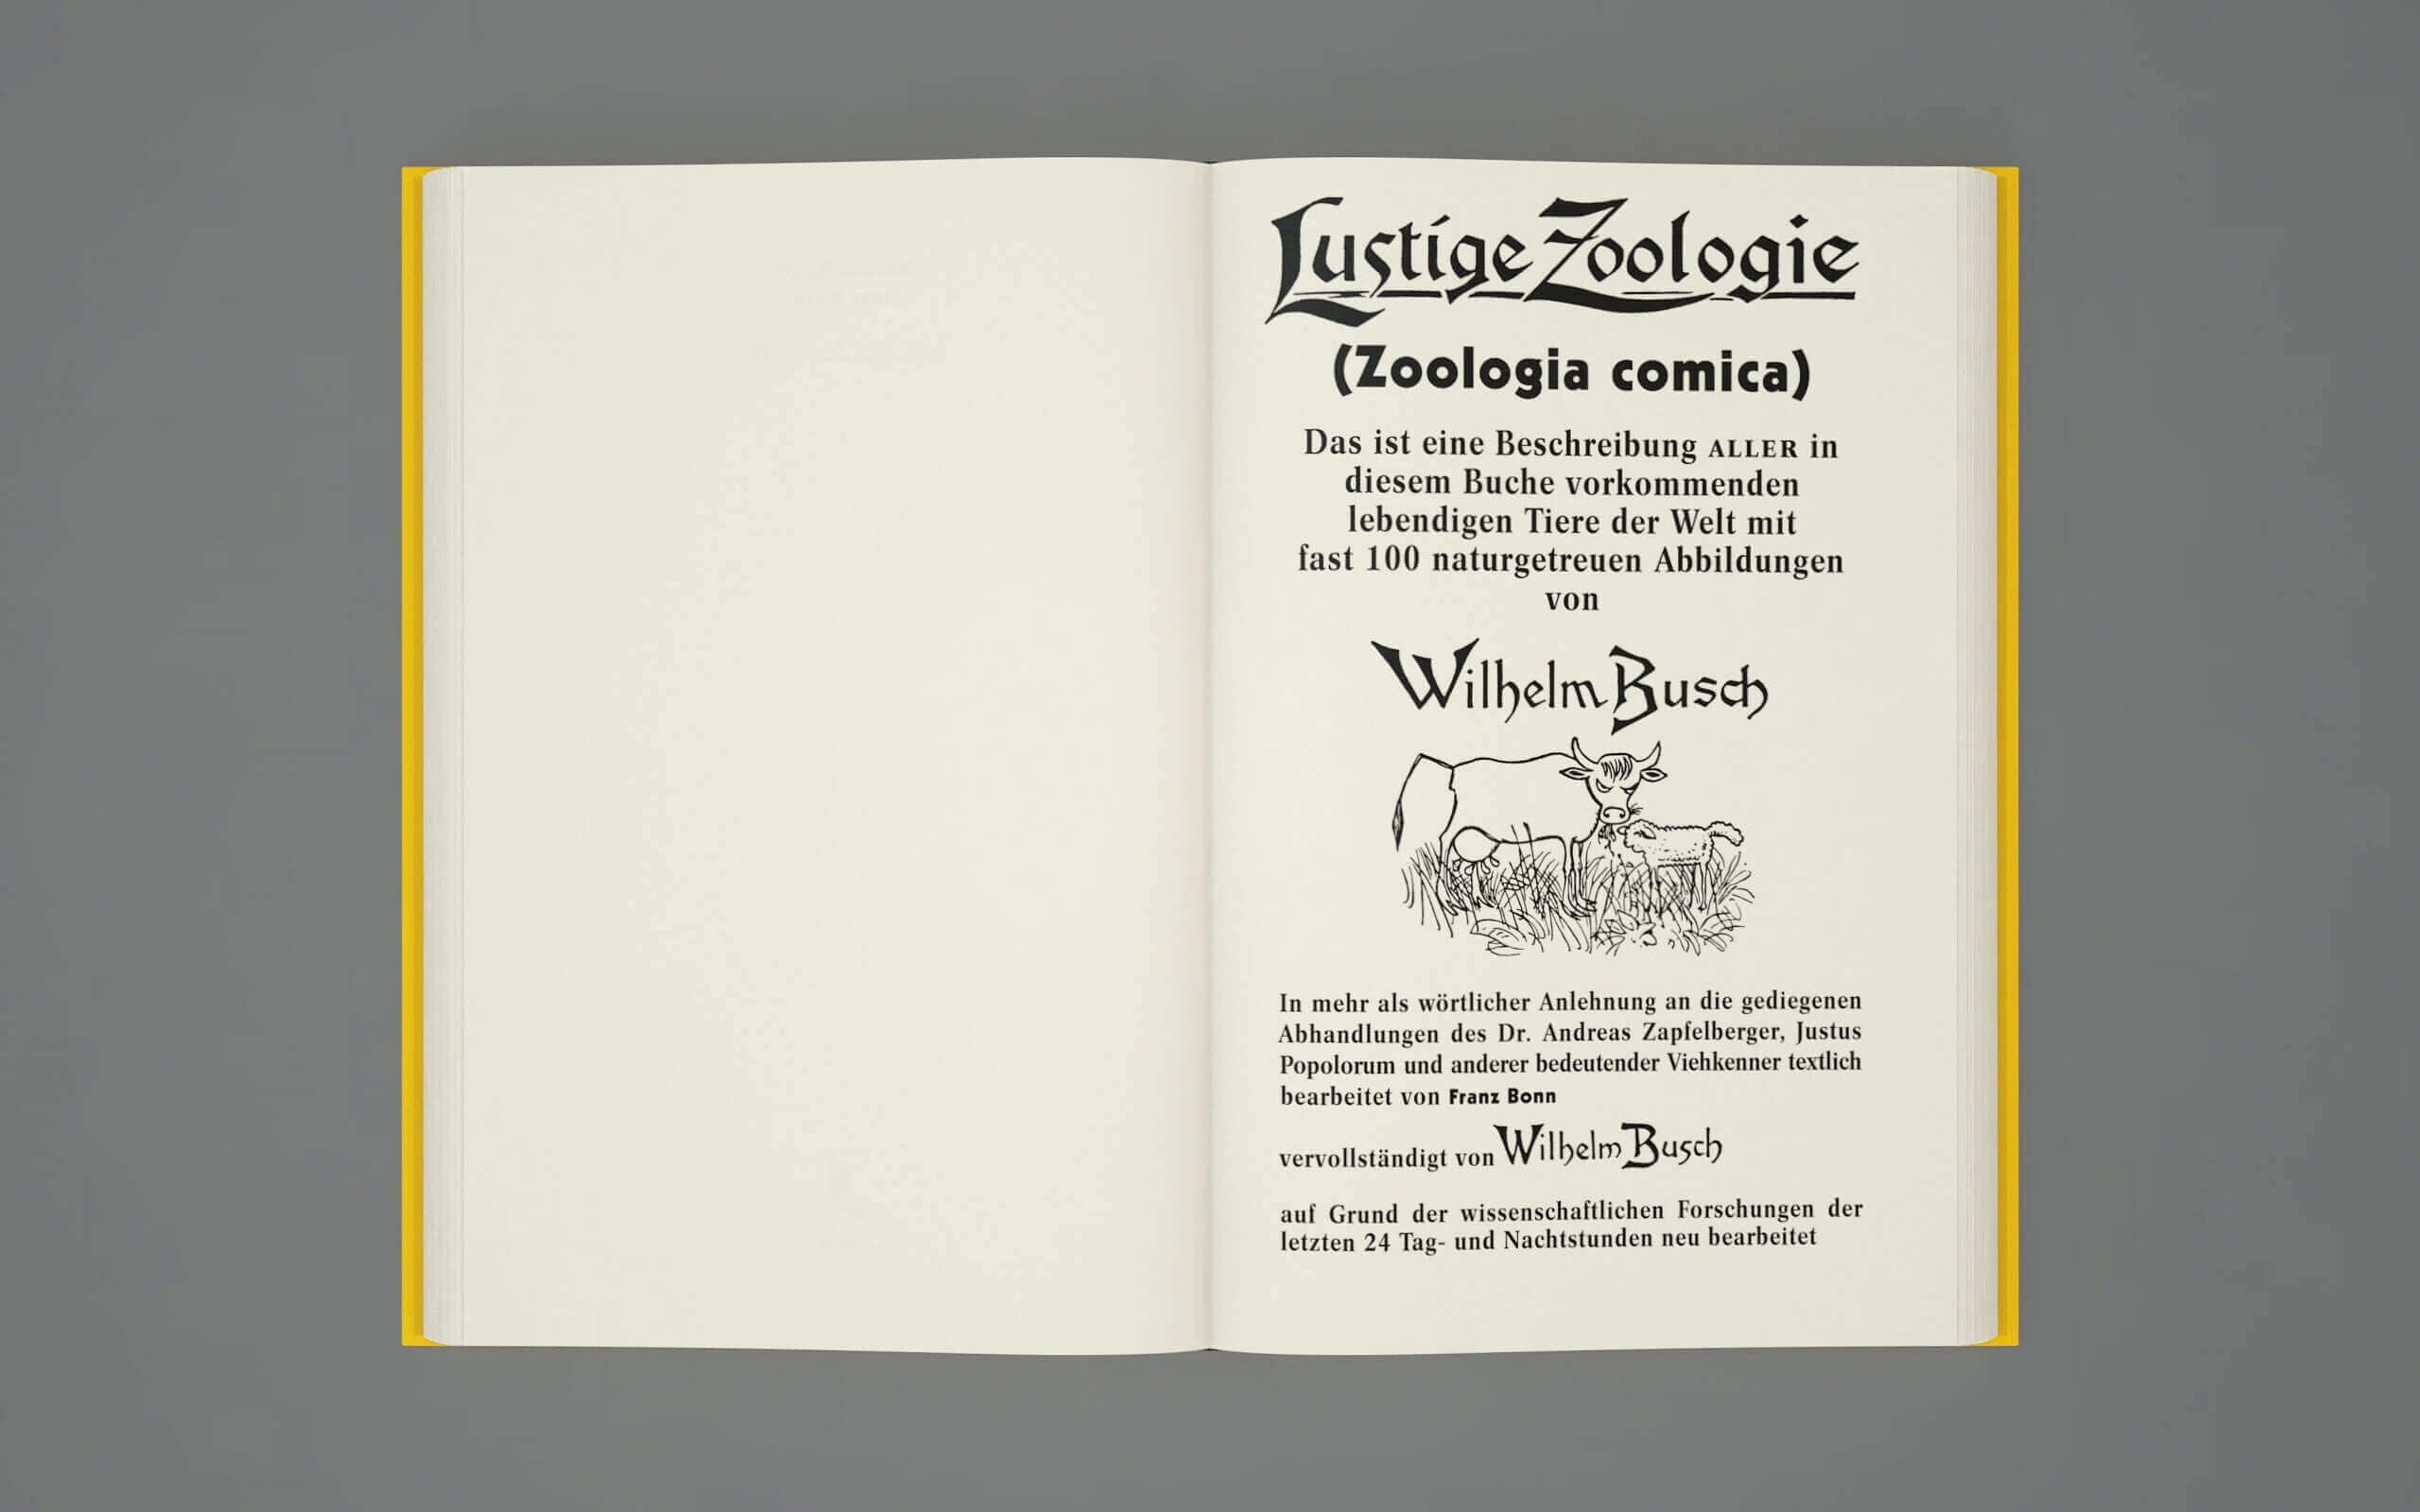 Lustige Zoologie
(Zoologia comica)
Das ist eine Beschreibung ALLER in
diesem Buche vorkommenden
lebendigen Tiere der Welt mit
fast 100 naturgetreuen Abbildungen
von
Wilhelm Busch
In mehr als wörtlicher Anlehnung an die gediegenen
Abhandlungen des Dr. Andreas Zapfelberger, Justus
Popolorum und anderer bedeutender Viehkenner textlich
bearbeitet von Franz Bonn
vervollständigt von Wilhelm Busch
auf Grund der wissenschaftlichen Forschungen der
letzten 24 Tag- und Nachtstunden neu bearbeitet